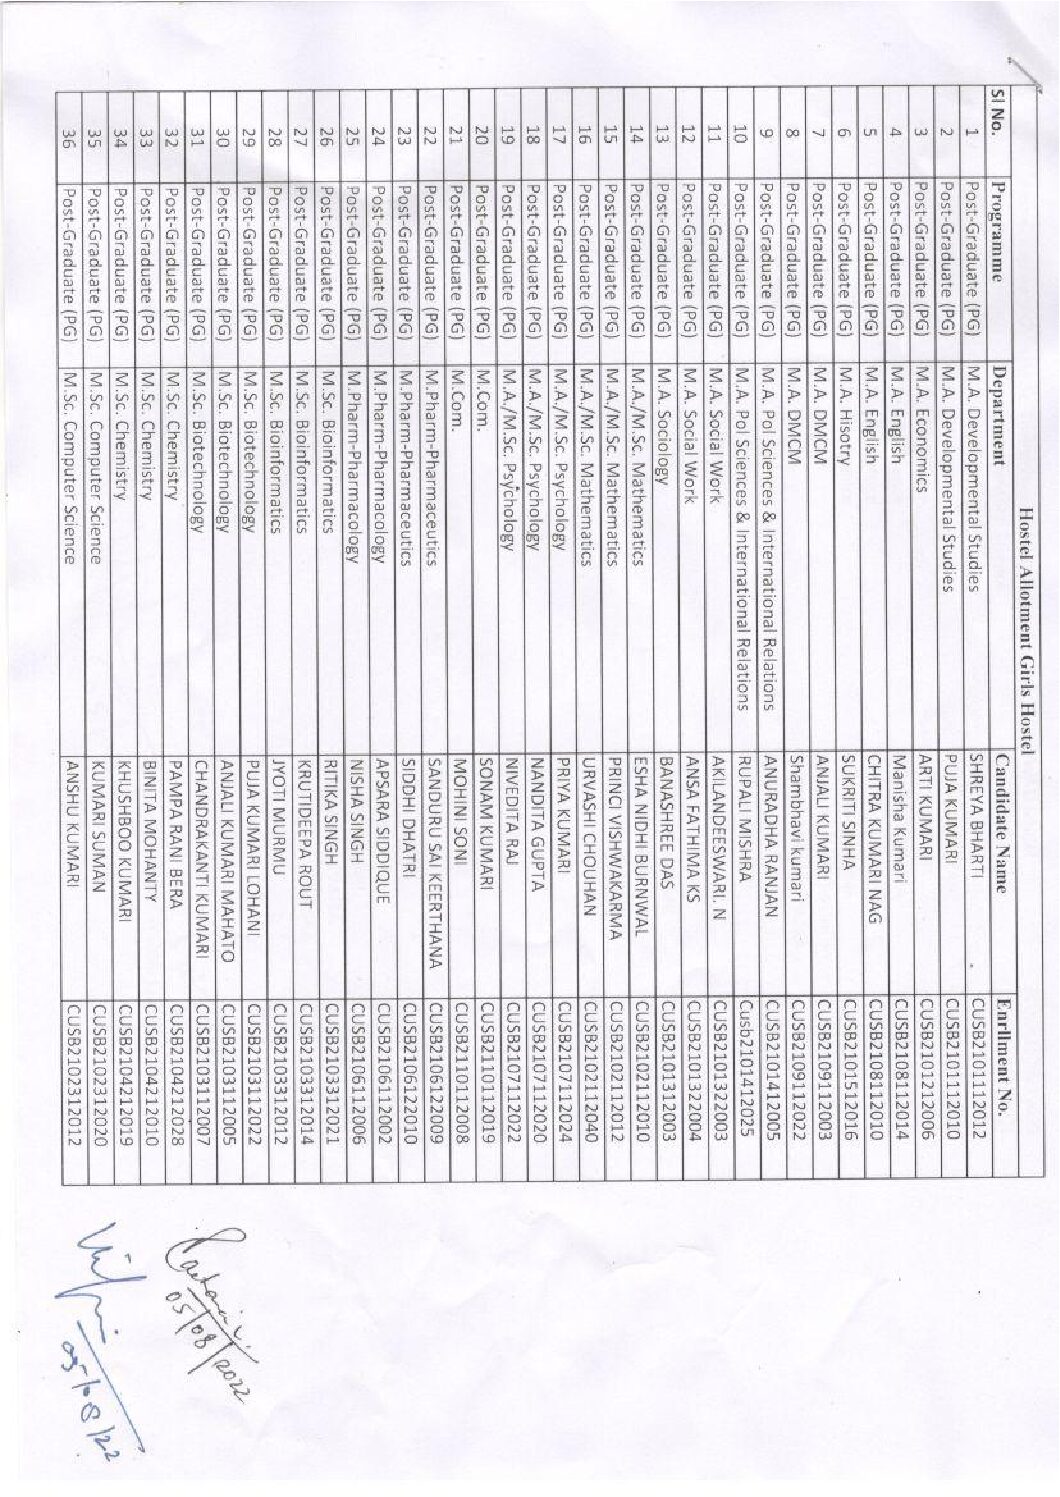 Hostel Allotment Girls Hostel
Sl No. Programme Department Candidate Name Enrllment No.
1 Post-Graduate (PG) M.A. Developmental Studies SHREYA BHARTI CUSB2101112012
2 Post-Graduate (PG) M.A. Developmental Studies PUJA KUMARI CUSB2101112010
3 Post-Graduate (PG) M.A. Economics ARTI KUMARI CUSB2101212006
4 Post-Graduate (PG) M.A. English Manisha Kumari CUSB2108112014
5 Post-Graduate (PG) M.A. English CHITRA KUMARI NAG CUSB2108112010
6 Post-Graduate (PG) M.A. Hisotry SUKRITI SINHA CUSB2101512016
7 Post-Graduate (PG) M.A. DMCM ANJALI KUMARI CUSB2109112003
8 Post-Graduate (PG) M.A. DMCM Shambhavi kumari CUSB2109112022
9 Post-Graduate (PG) M.A. Pol Sciences & International Relations ANURADHA RANJAN CUSB2101412005
10 Post-Graduate (PG) M.A. Pol Sciences & International Relations RUPALI MISHRA Cusb2101412025
11 Post-Graduate (PG) M.A. Social Work AKILANDEESWARI. N CUSB2101322003
12 Post-Graduate (PG) M.A. Social Work ANSA FATHIMA KS CUSB2101322004
13 Post-Graduate (PG) M.A. Sociology BANASHREE DAS CUSB2101312003
14 Post-Graduate (PG) M.A./M.Sc. Mathematics ESHA NIDHI BURNWAL CUSB2102112010
15 Post-Graduate (PG) M.A./M.Sc. Mathematics PRINCI VISHWAKARMA CUSB2102112012
16 Post-Graduate (PG) M.A./M.Sc. Mathematics URVASHI CHOUHAN CUSB2102112040
17 Post-Graduate (PG) M.A./M.Sc. Psychology PRIYA KUMARI CUSB2107112024
18 Post-Graduate (PG) M.A./M.Sc. Psychology NANDITA GUPTA CUSB2107112020
19 Post-Graduate (PG) M.A./M.Sc. Psychology NIVEDITA RAI CUSB2107112022
20 Post-Graduate (PG) M.Com. SONAM KUMARI CUSB2111012019
21 Post-Graduate (PG) M.Com. MOHINI SONI CUSB2111012008
22 Post-Graduate (PG) M.Pharm-Pharmaceutics SANDURU SAI KEERTHANA CUSB2106122009
23 Post-Graduate (PG) M.Pharm-Pharmaceutics SIDDHI DHATRI CUSB2106122010
24 Post-Graduate (PG) M.Pharm-Pharmacology APSARA SIDDIQUE CUSB2106112002
25 Post-Graduate (PG) M.Pharm-Pharmacology NISHA SINGH CUSB2106112006
26 Post-Graduate (PG) M.Sc. Bioinformatics RITIKA SINGH CUSB2103312021
27 Post-Graduate (PG) M.Sc. Bioinformatics KRUTIDEEPA ROUT CUSB2103312014
28 Post-Graduate (PG) M.Sc. Bioinformatics JYOTI MURMU CUSB2103312012
29 Post-Graduate (PG) M.Sc. Biotechnology PUJA KUMARI LOHANI CUSB2103112022
30 Post-Graduate (PG) M.Sc. Biotechnology ANJALI KUMARI MAHATO CUSB2103112005
31 Post-Graduate (PG) M.Sc. Biotechnology CHANDRAKANTI KUMARI CUSB2103112007
32 Post-Graduate (PG) M.Sc. Chemistry PAMPA RANI BERA CUSB2104212028
33 Post-Graduate (PG) M.Sc. Chemistry BINITA MOHANTY CUSB2104212010
34 Post-Graduate (PG) M.Sc. Chemistry KHUSHBOO KUMARI CUSB2104212019
35 Post-Graduate (PG) M.Sc. Computer Science KUMARI SUMAN CUSB2102312020
36 Post-Graduate (PG) M.Sc. Computer Science ANSHU KUMARI CUSB2102312012
05/08/2022
05/08/22